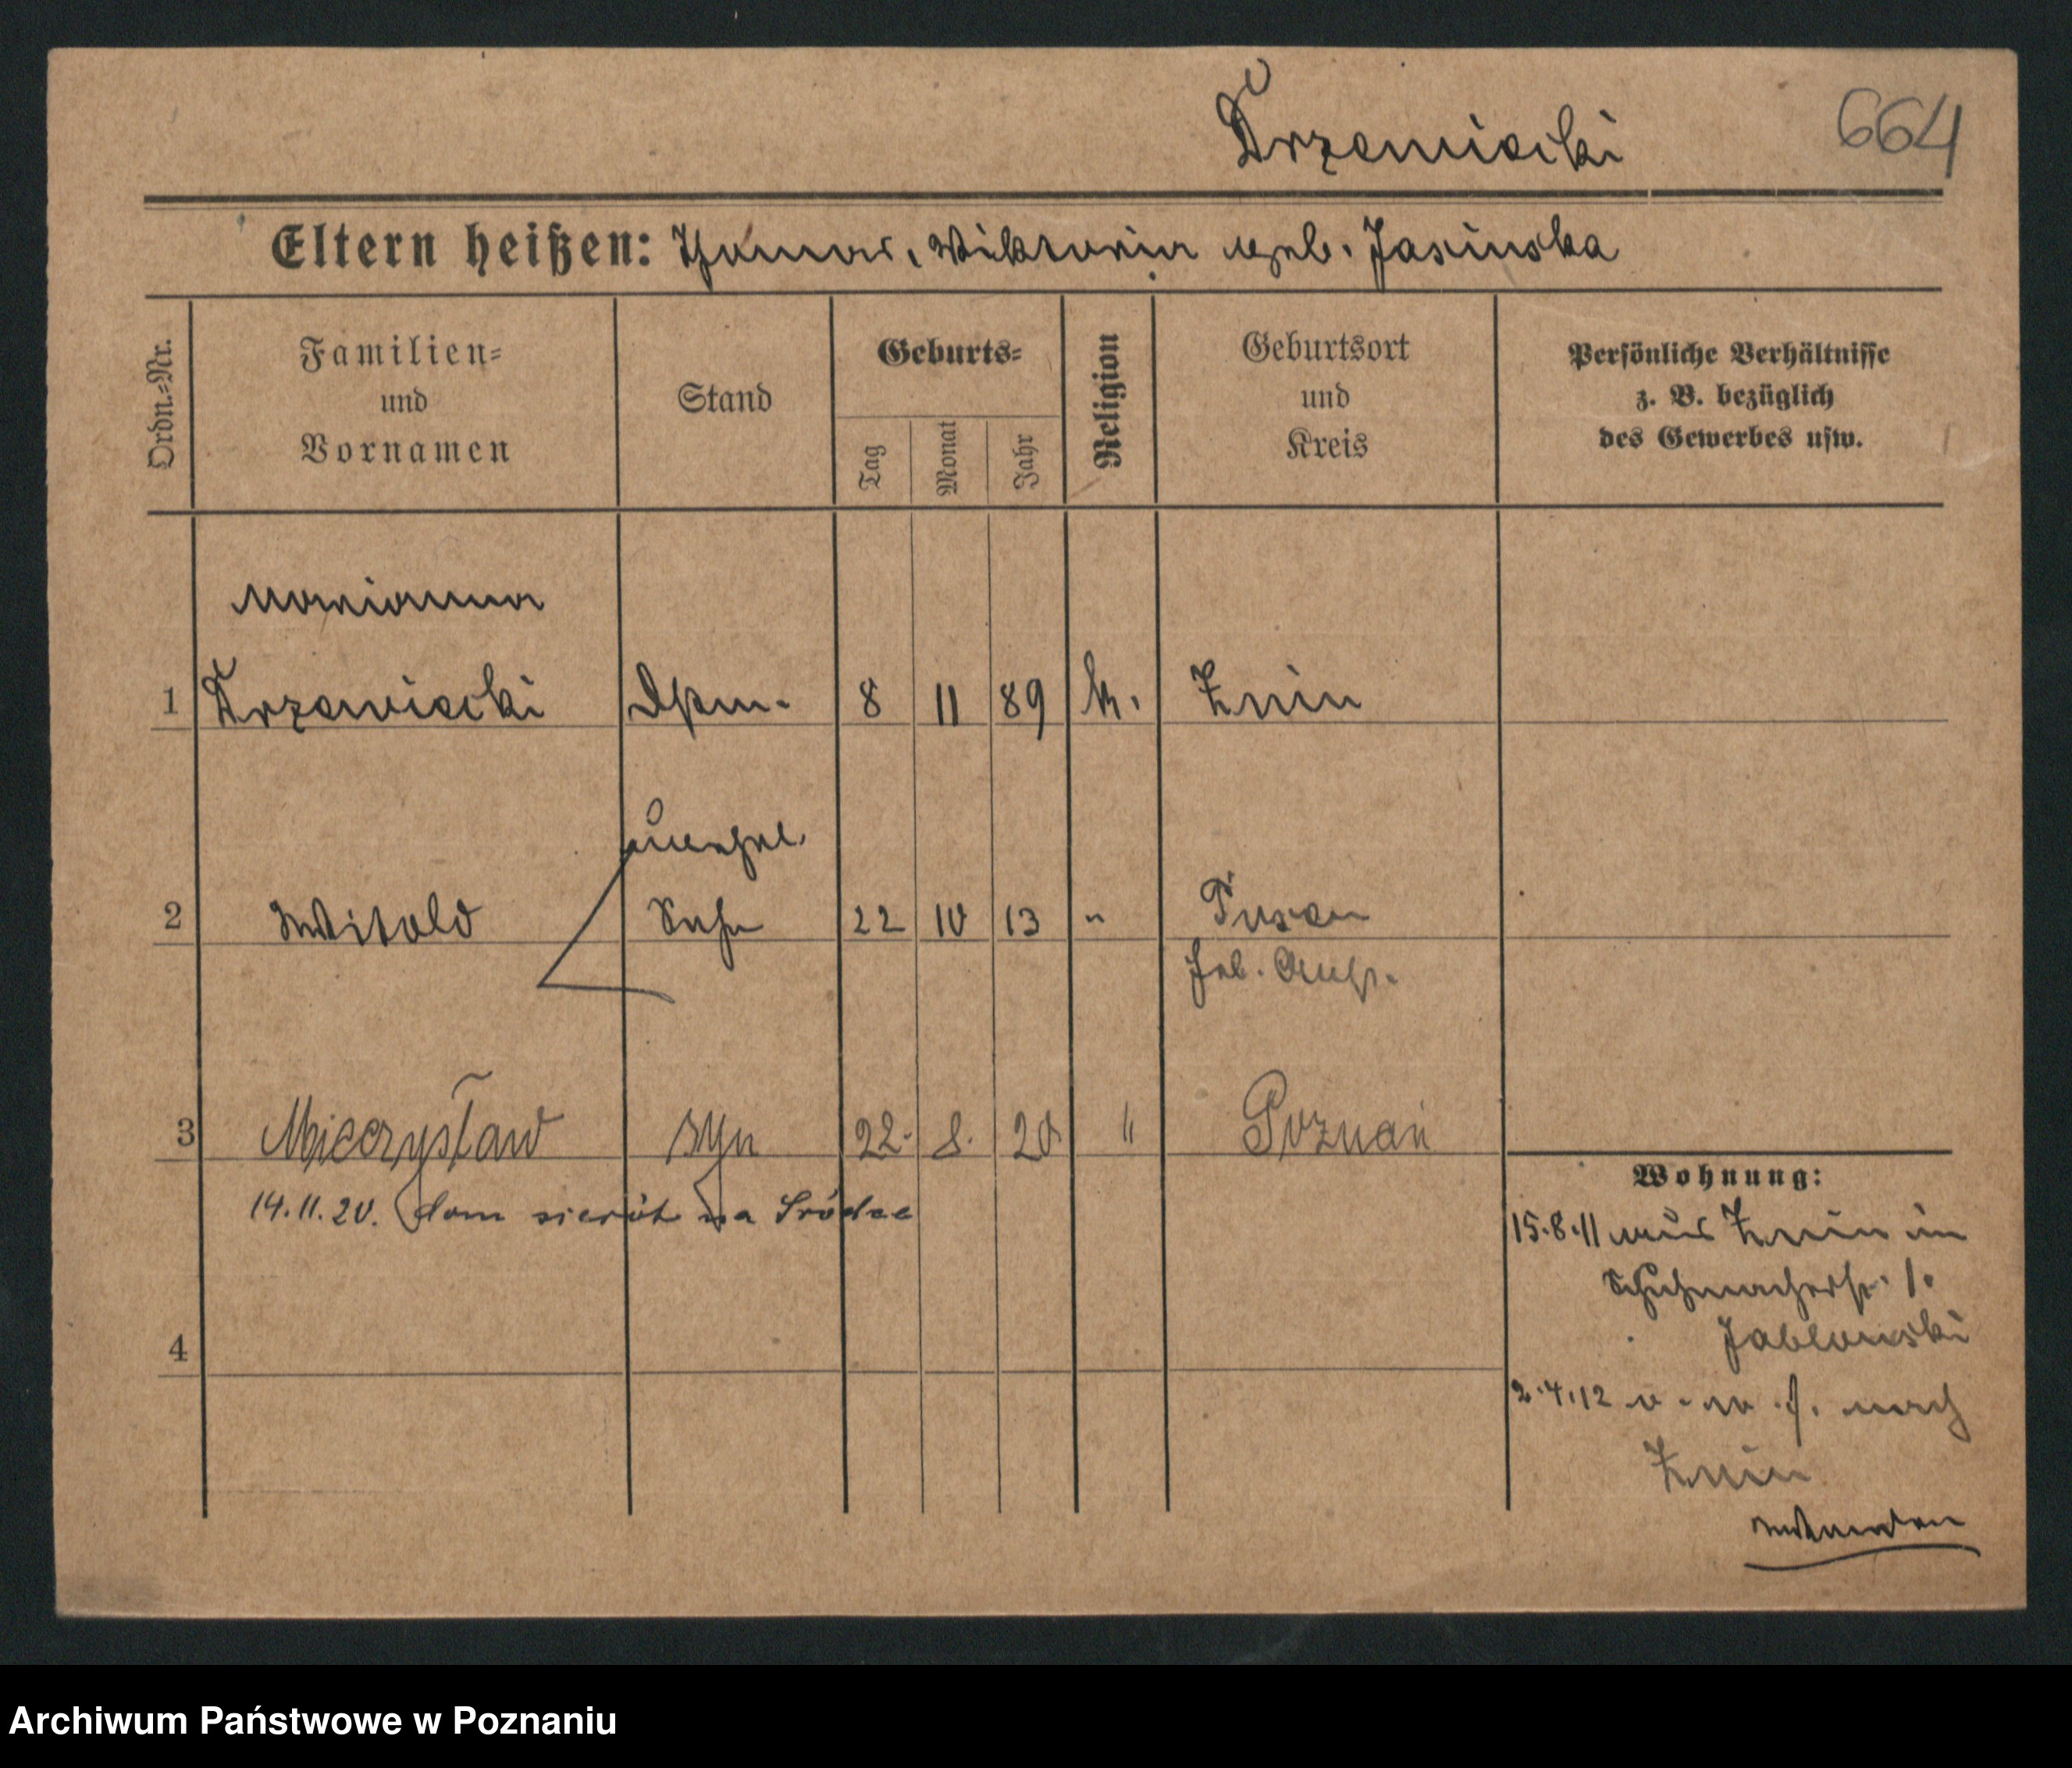 Trzemiecki
664
Eltern heißen: Thomas, Wiktoria geb. Jasinska
Ordn.=Nr.
Familien=
und
Vornamen
Stand
Geburts=
Tag
Monat
Jahr
Religion
Geburtsort
und
Kreis
Persönliche Verhältnisse
z. B. bezüglich
des Gewerbes usw.
Marianna
1 Trzemiecki 8 11 89 k. Znin
unehel.
2 Witold Sohn 22 10 13 " Posen
Geb.
3 Mieczysław syn 22. 8. 20 " Poznań
14.11.20. dom sierót na Śródce
4
Wohnung:
15.8.11 aus Znin in
Schuhmacherstr. 1.
Jablonski
2.4.12 nach
Znin
wenden
Archiwum Państwowe w Poznaniu